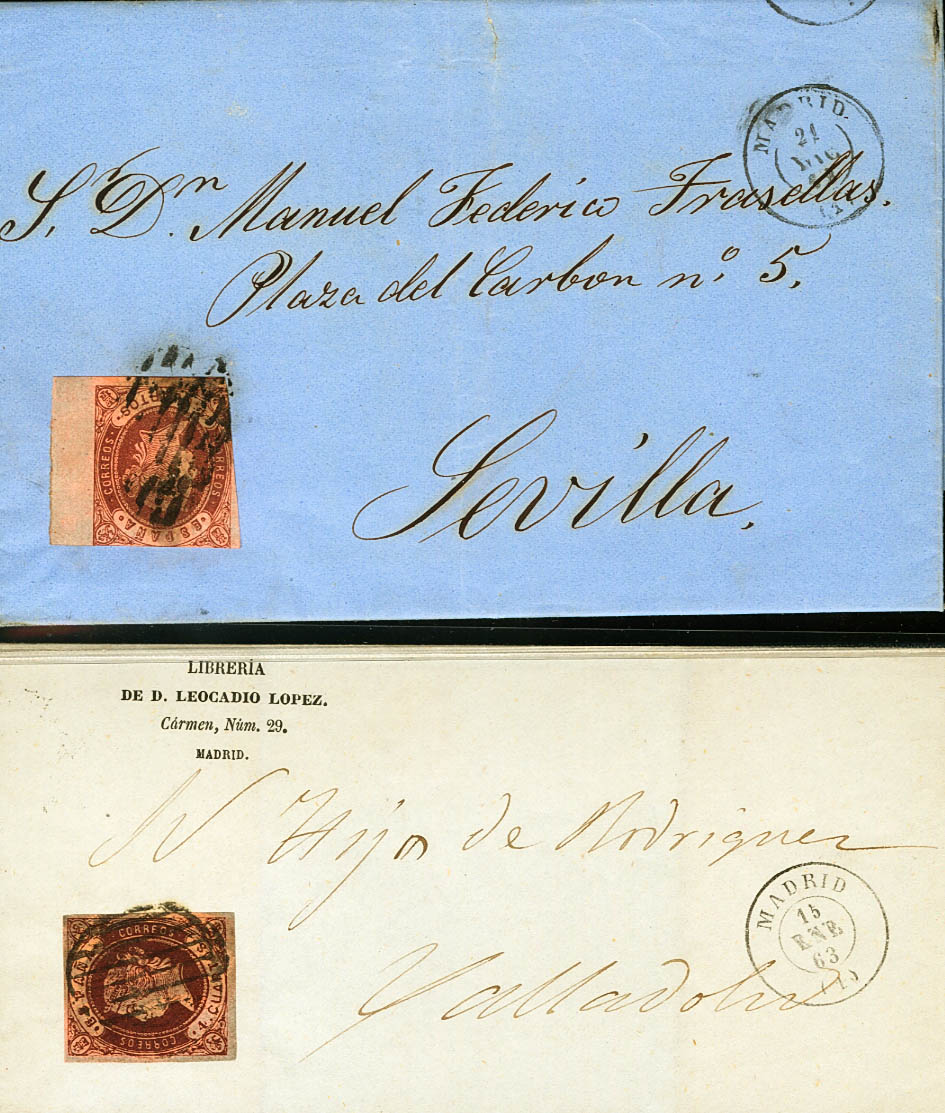 MADRID
21
DIC
S.r D.n Manuel Federico Frasellas.
Plaza del Carbon nº 5.
CORREOS · CORREOS
ESPAÑA
Sevilla.
LIBRERÍA
DE D. LEOCADIO LOPEZ.
Cármen, Núm. 29.
MADRID.
Hijo de Rodriguez
MADRID
15
ENE
63
(1)
CORREOS
4 CUA
CORREOS
Valladolid